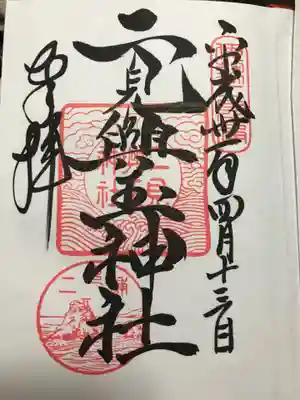 平成卅一年四月十三日
二見興玉神社
奉拝